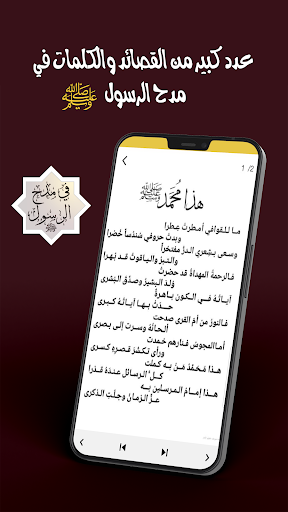 عدد كبير من القصائد والكلمات في
مدح الرسول ﷺ
في مدح
الرسول
ﷺ
1/2
هذا محمد ﷺ
ما للقوافي أمطرت عطرا
وبدت حروفي سندسا خضرا
وسعى بشعري الدر مفتخرا
والتبر والياقوت قد بهرا
فالرحمة المهداة قد حضرت
ولد البشير وصدق البشرى
آياته في الكون باهرة
حدث بها آياته كبرى
فالنور من أم القرى صدحت
ألحانه وسرت إلى بصرى
أما المجوس فنارهم خمدت
ورأى تكسر قصره كسرى
هذا محمد من به كملت
كل الرسائل عنده قدرا
هذا إمام المرسلين به
عز الزمان وجلت الذكرى